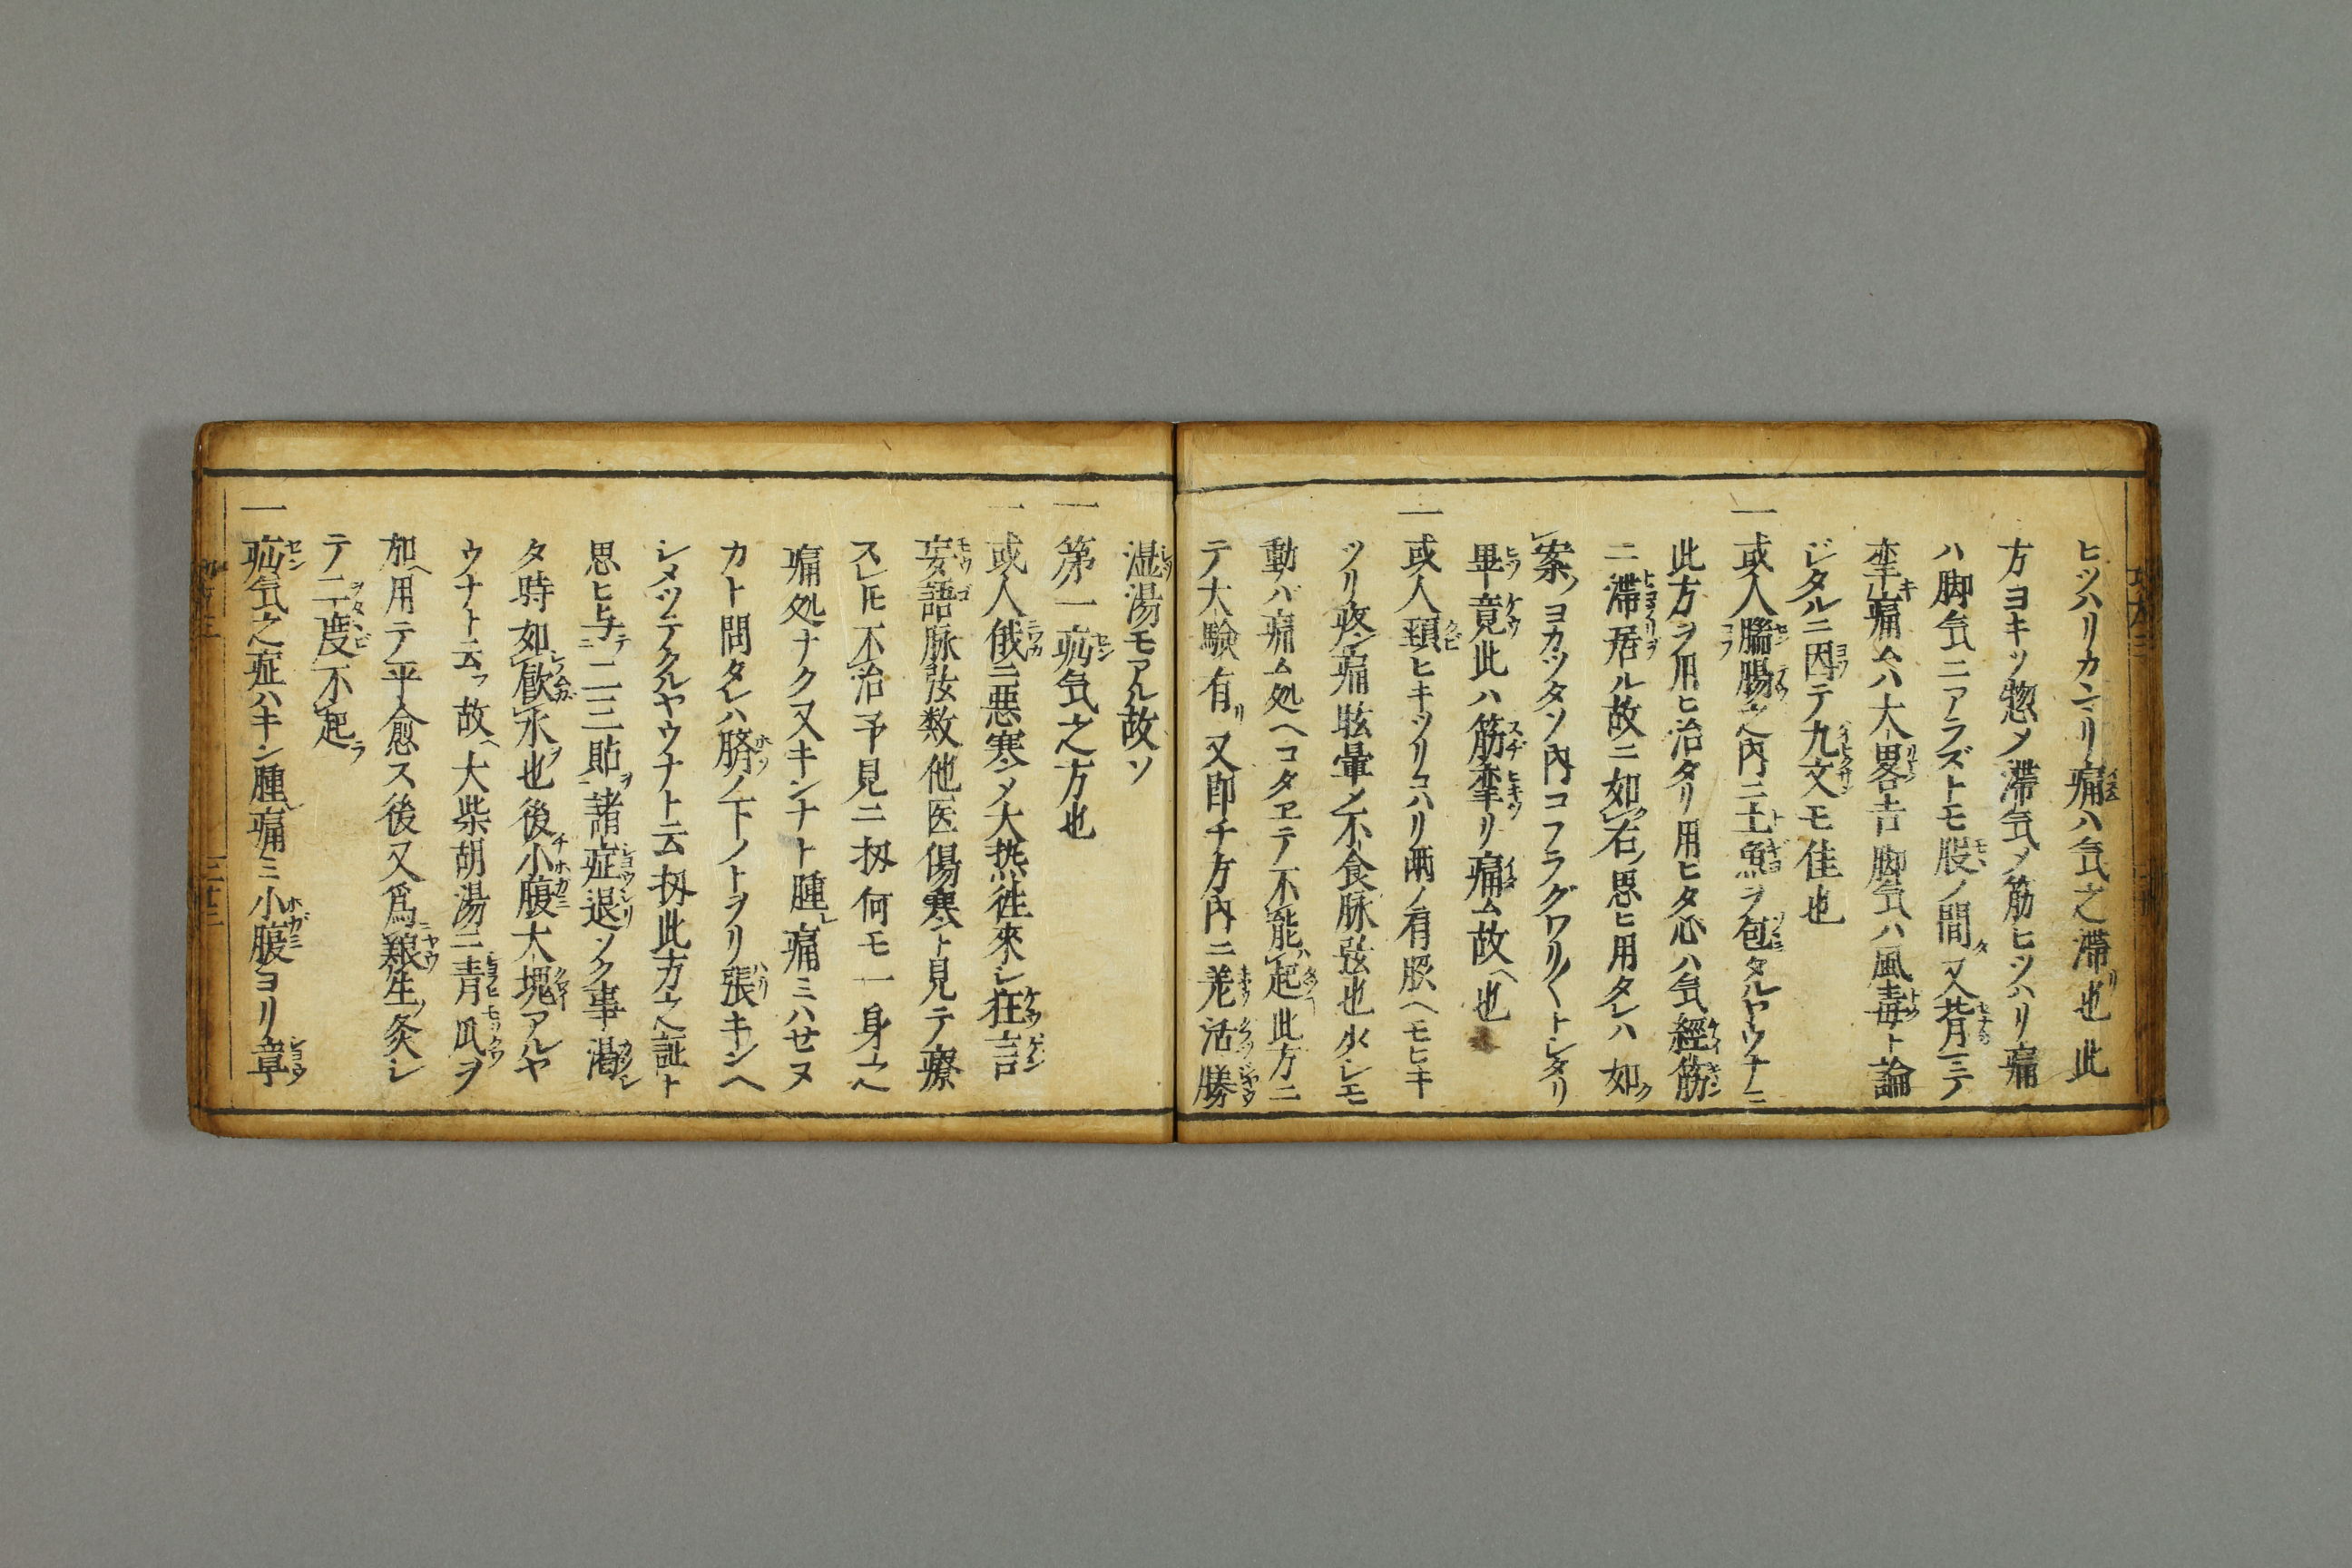 ヒツハリカニリ痛ハ気之滞也此
方ヨキソ惣〆滞気〆筋ヒツハリ痛
ハ脚気ニアラズトモ股ノ間又背ニテ
牽痛ムハ大畧吉脚気ハ風毒ト論
ジタルニ因テ九文モ佳也
一或人腨腸之内ニ土鮒ヲ包タルヤウナニ
此方ヲ用ヒ治タリ用ヒタ心ハ気經筋
ニ滞居ル故ニ如右思ヒ用タレハ如
案ヨカツタソ内コフラグワリ〱トシタリ
畢竟此ハ筋牽リ痛ム故也
一或人頚ヒキツリコハリ両ノ有股ヘモヒキ
ツリ疼痛眩暈〆不食脉弦也少シモ
動ハ痛ム処ヘコタヱテ不能起此方ニ
テ大驗有又即チ方内ニ羌活勝
湿湯モアル故ソ
一第一疝気之方也
一或人俄ニ悪寒〆大热徃來シ狂言
妄語脉弦数他医傷寒ト見テ療
スレ𪜈不治予見ニ扨何モ一身之
痛処ナク又キンナト腫痛ミハせヌ
カト問タレハ臍ノ下ノトヲリ張キンヘ
シメツテクルヤウナト云扨此方之証ト
思ヒ与テ二三貼諸症退ソク事渇
タ時如飮水也後小腹大塊アルヤ
ウナト云故大柴胡湯ニ青瓜ヲ
加用テ平愈ス後又爲生灸シ
テ二度不起
一疝気之症ハキン腫痛ミ小腹ヨリ章